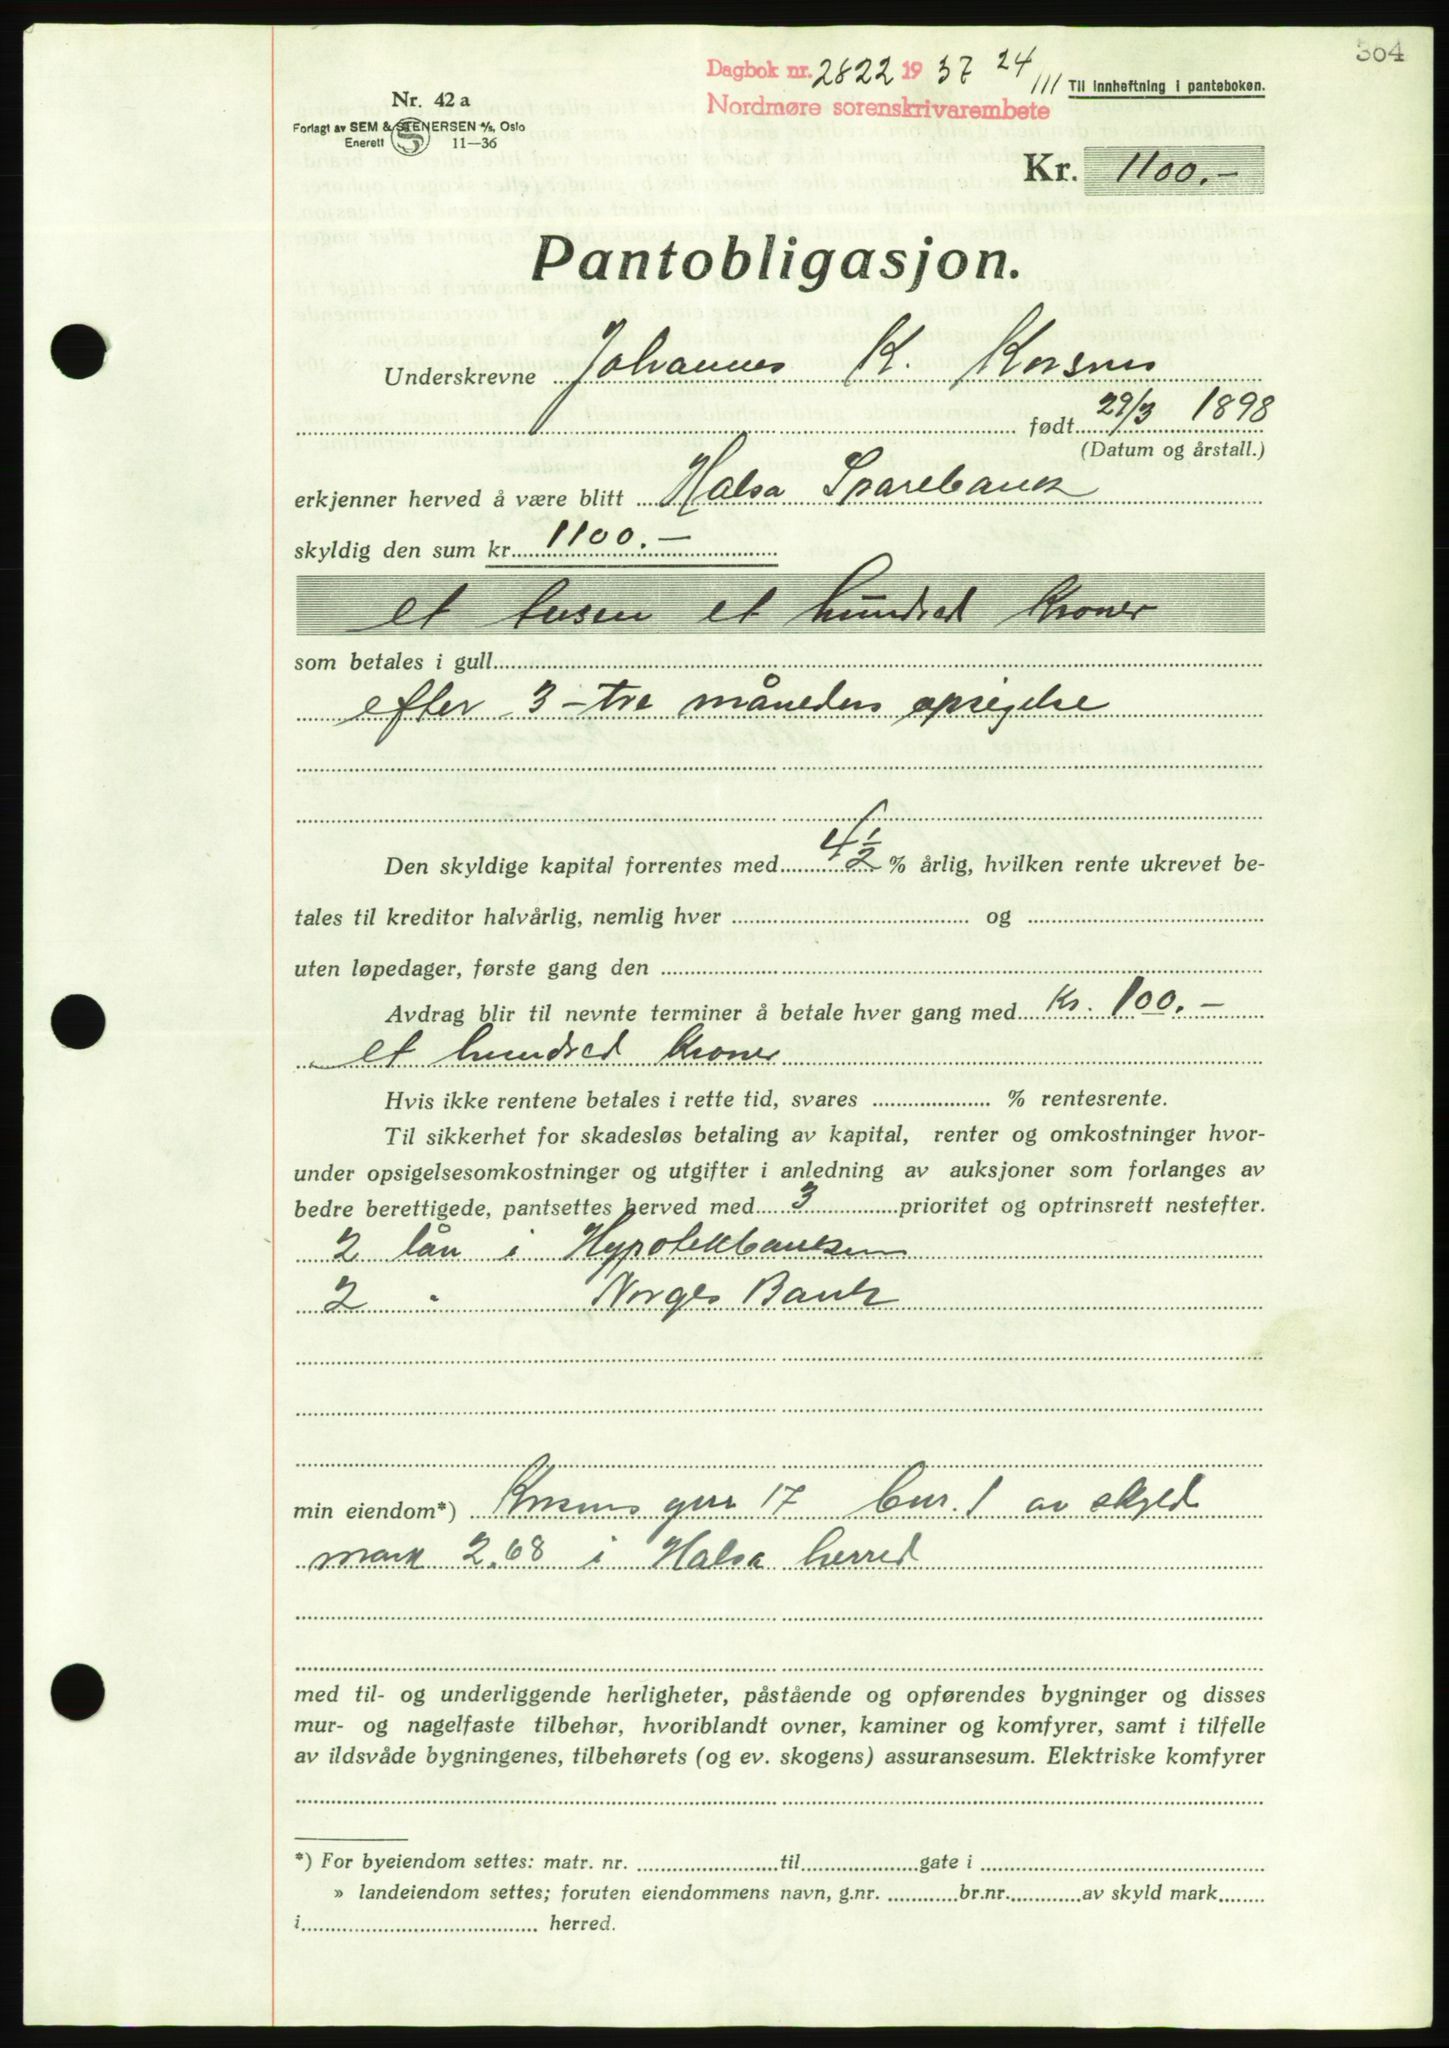 304
Dagbok nr. 2822 1937 24/11
Til innheftning i panteboken.
Nordmøre sorenskrivarembete
Nr. 42 a
Forlagt av SEM & STENERSEN A/S, Oslo
Enerett 11—36
Kr. 1100.-
Pantobligasjon.
Underskrevne Johannes K. Korsnes
født 29/3 1898
(Datum og årstall.)
erkjenner herved å være blitt Halsa Sparebank
skyldig den sum kr. 1100.-
et tusen et hundred Kroner
som betales i gull
efter 3-tre måneders opsigelse
Den skyldige kapital forrentes med 4 1/2 % årlig, hvilken rente ukrevet be-
tales til kreditor halvårlig, nemlig hver og
uten løpedager, første gang den
Avdrag blir til nevnte terminer å betale hver gang med Kr. 100.-
et hundred Kroner
Hvis ikke rentene betales i rette tid, svares % rentesrente.
Til sikkerhet for skadesløs betaling av kapital, renter og omkostninger hvor-
under opsigelsesomkostninger og utgifter i anledning av auksjoner som forlanges av
bedre berettigede, pantsettes herved med 3 prioritet og optrinsrett nestefter.
2 lån i Hypotekbanken
2 " Norges Bank
min eiendom*) Korsnes gnr 17 bnr. 1 av skyld
mark 2.68 i Halsa herred
med til- og underliggende herligheter, påstående og opførendes bygninger og disses
mur- og nagelfaste tilbehør, hvoriblandt ovner, kaminer og komfyrer, samt i tilfelle
av ildsvåde bygningenes, tilbehørets (og ev. skogens) assuransesum. Elektriske komfyrer
*) For byeiendom settes: matr. nr. til gate i
» landeiendom settes; foruten eiendommens navn, g.nr. br.nr. av skyld mark
i herred.